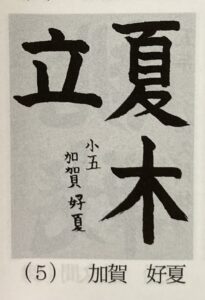 夏木
立
小五
加賀好夏
（5）　加賀　好夏